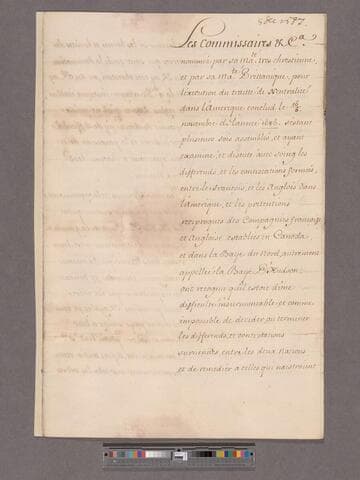 5 dec 1687
Les Commissaires & Ca.
nommés par sa Mate. tres chrestienne
et par sa Mate. Britanique, pour
l'execution du traitté de Neutralité
dans l'Amerique conclud le 16/6
novembre de l'année 1686. s'estant
plusieurs fois assemblés, et ayant
examiné, et discuté avec soing les
differends, et les contestations formées
entre les françois, et les Anglois dans
l'amerique, et les pretentions
reciproques des Compagnies françoise
et Angloise establies en Canada,
et dans la Baye du Nord, autrement
appellée la Baye d'Hudson
ont recognu qu'il estoit d'une
difficulté insurmontable, et comme
impossible de decider ou terminer
les differends, et contestations
survenus, entre les deux nations
et de remedier a telles qui naistroient